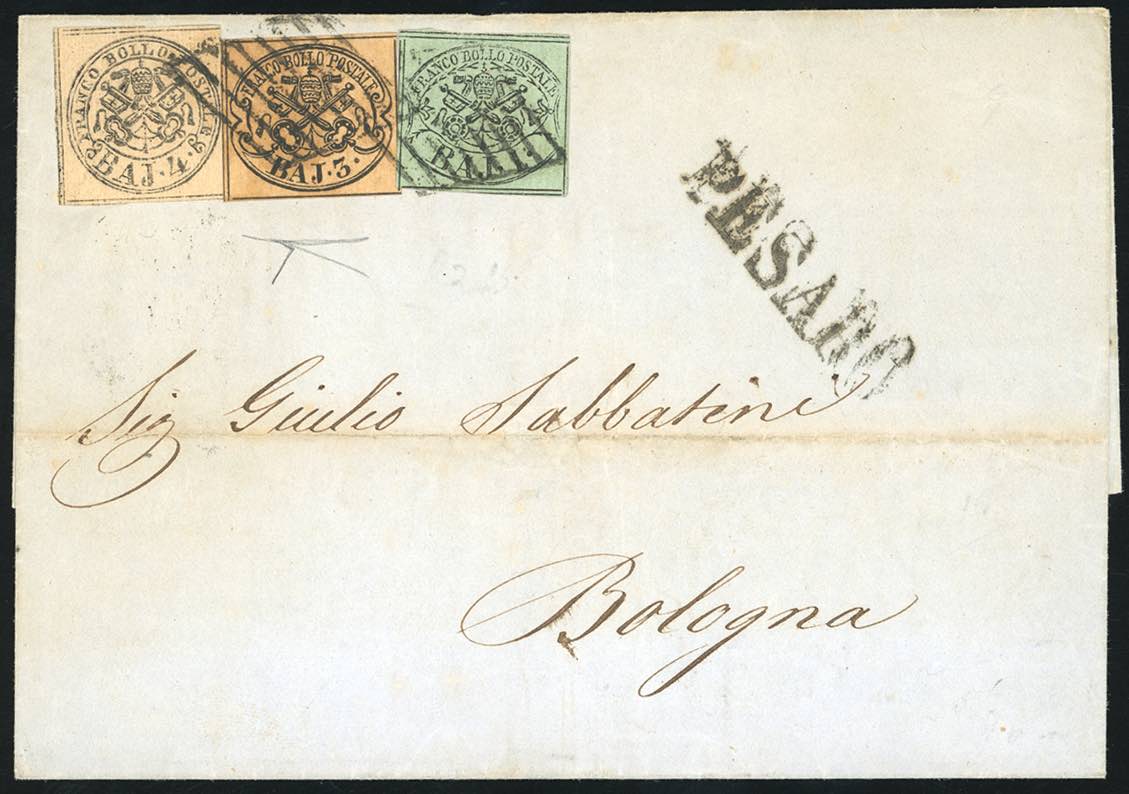 FRANCO BOLLO POSTALE
BAJ. 4.
FRANCO BOLLO POSTALE
BAJ. 3.
FRANCO BOLLO POSTALE
BAJ.
PESARO
Sig Giulio Sabbatini
Bologna